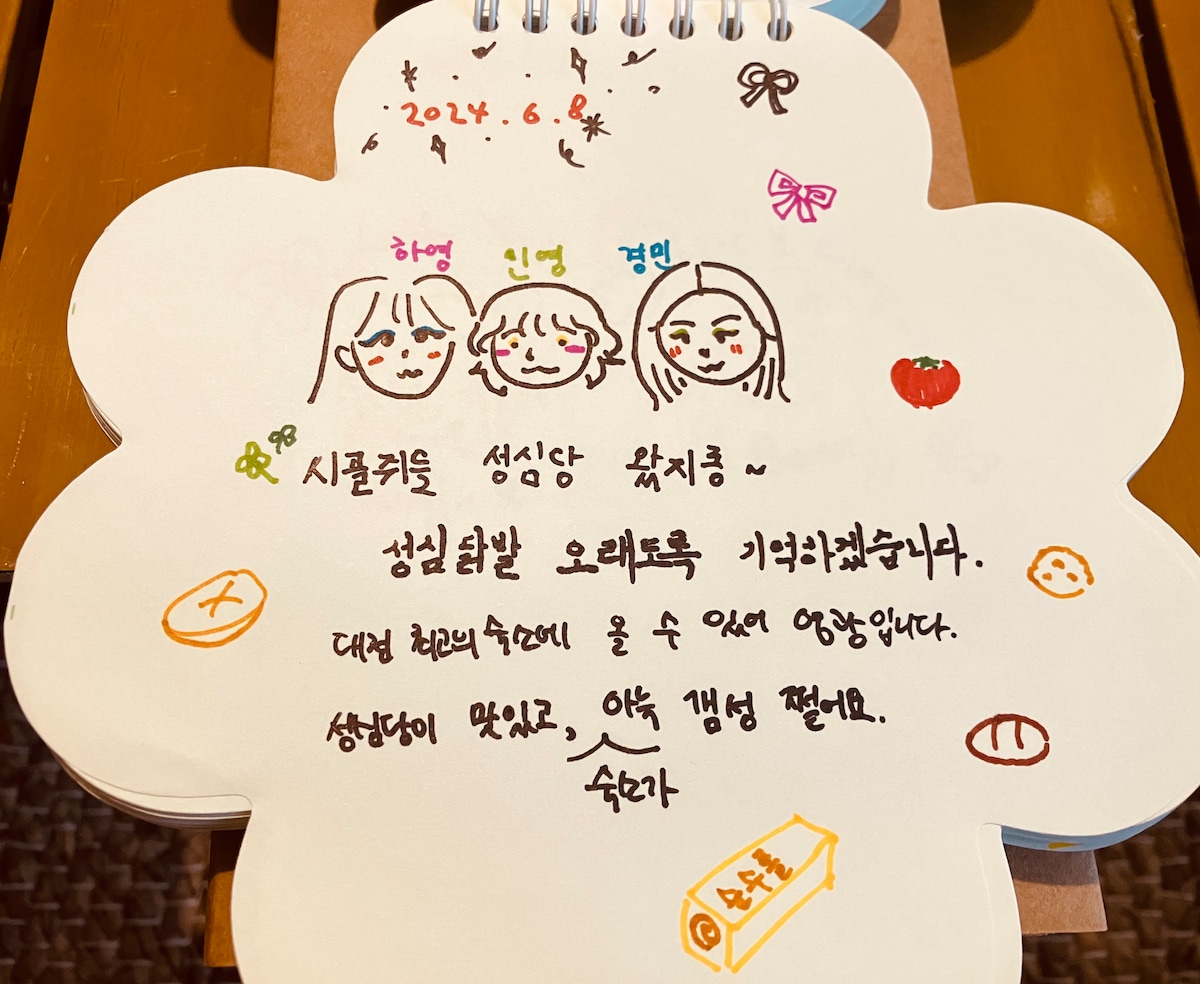 2024.6.8
하영 민영 경민
시골쥐들 성심당 왔지롱~
성심닭발 오래도록 기억하겠습니다.
대전 최고의 숙소에 올 수 있어 영광입니다.
성심당이 맛있고, 아늑 갬성 쩔어요.
숙소가
순수롤